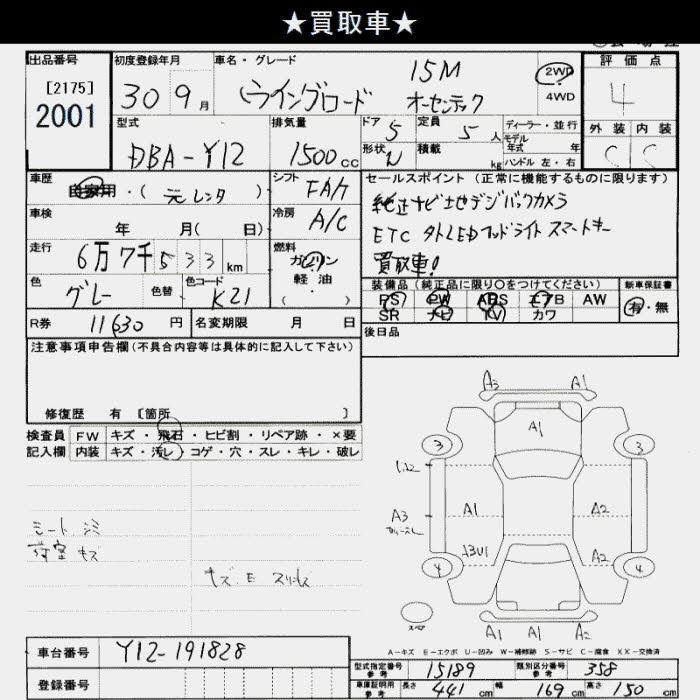 ★買取車★
出品番号 初度登録年月 車名・グレード 15M 評価点
[2175] 2001 30 9月 ウイングロード オーセンテック 2WD 4WD 4
型式 排気量 ドア 5 定員 5 人 ディーラー・並行 外装 内装
DBA-Y12 1500cc 形状 積載 kg モデル年式 年 ハンドル 左・右 C C
車歴 自家用・(元レンタ) シフト FAT セールスポイント(正常に機能するものに限ります)
車検 年 月(日) 冷房 A/C 純正ナビ地デジバックカメラ
ETC 外LEDフッドライト スマートキー
走行 6万7千533km 燃料 ガソリン 軽油 ( ) 買取車!
色 グレー 色替 色コード K21 装備品(純正品に限り○をつけてください) 新車保証書
PS PW ABS エアB AW 有・無
SR ナビ TV カワ
R券 11630円 名変期限 月 日 後日品
注意事項申告欄(不具合内容等は具体的に記入して下さい)
修復歴 有 [箇所 ]
検査員 FW キズ・飛石・ヒビ割・リペア跡・×要
記入欄 内装 キズ・汚レ・コゲ・穴・スレ・キレ・破レ
シート シミ
荷室 キズ
A3 A1
A1
3 3
A3 A1 A2
A2
4 4
スペア
A1 A1 A2
A-キズ E-エクボ U-凹み W-補修跡 S-サビ C-腐食 XX-交換済
車台番号 Y12-191828
登録番号
型式指定番号 参考 15189 類別区分番号 参考 358
車庫証明用 参考 長さ 441cm 幅 169cm 高さ 150cm